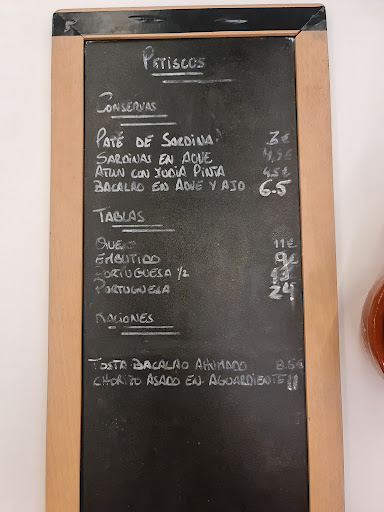 Petiscos
Conservas
Paté de Sardina 3€
Sardinas en AOVE 4,5€
Atun con Judia Pinta 4.5€
Bacalao en AOVE y Ajo 6.5
Tablas
Queso 11€
Embutido 9€
Portuguesa 1/2 13
Portuguesa 24
Raciones
Tosta Bacalao Ahumado 8.5€
Chorizo Asado en Aguardiente 11